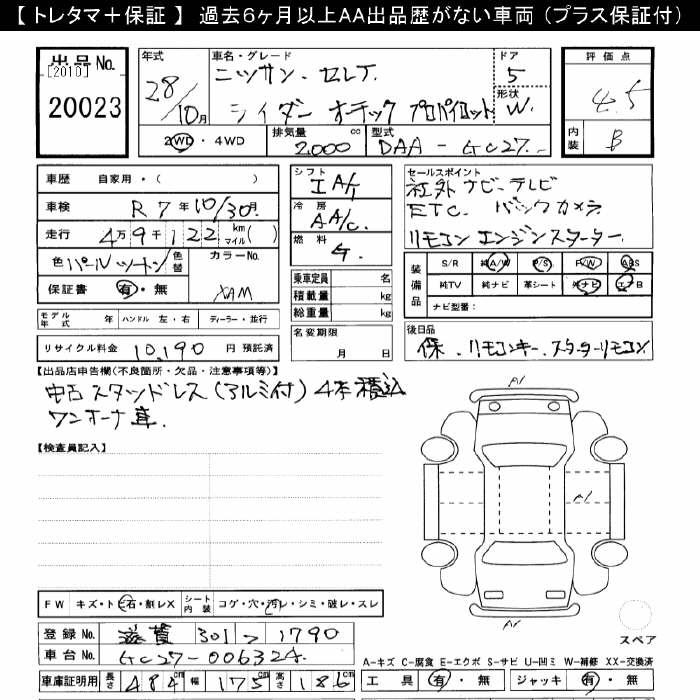 【トレタマ＋保証】 過去6ヶ月以上AA出品歴がない車両（プラス保証付）
出品No.
[2010]
20023
年式
28/10月
車名・グレード
ニッサン. セレナ.
ライダー オーテック プロパイロット
ドア
5
形状
W.
2WD・4WD
排気量
2000 cc
型式
DAA-GC27-
評価点
4.5
内装
B
車歴 自家用・( )
車検 R7年10/30月
走行 4万9千122 km マイル( )
色 パールツートン 色替
カラーNo.
XAM
保証書 有・無
モデル年式 年 ハンドル 左・右 ディーラー・並行
リサイクル料金 10,190 円 預託済
シフト
IA/T
冷房
AA/C.
燃料
G.
乗車定員 名
積載量 kg
総重量 kg
名変期限
月 日
セールスポイント
社外ナビ.テレビ
ETC. バックカメラ
リモコンエンジンスターター.
装備品
S/R 純A/W P/S P/W ABS
純TV 純ナビ 革シート 外ナビ エアB
ナビ型番:
後日品
保. リモコンキー. スターターリモコン
【出品店申告欄(不良箇所・欠品・注意事項等)】
中古スタッドレス(アルミ付)4本積込
ワンオーナー車.
【検査員記入】
A1
A1
A1
スペア
FW キズ・トビ石・割レX
シート内装 コゲ・穴・汚レ・シミ・破レ・スレ
登録No. 滋賀 301 つ 1790
車台No. GC27-006324
車庫証明用 長さ 484cm 幅 175cm 高さ 186cm
A-キズ C-腐食 E-エクボ S-サビ U-凹ミ W-補修 XX-交換済
工具 有・無 ジャッキ 有・無